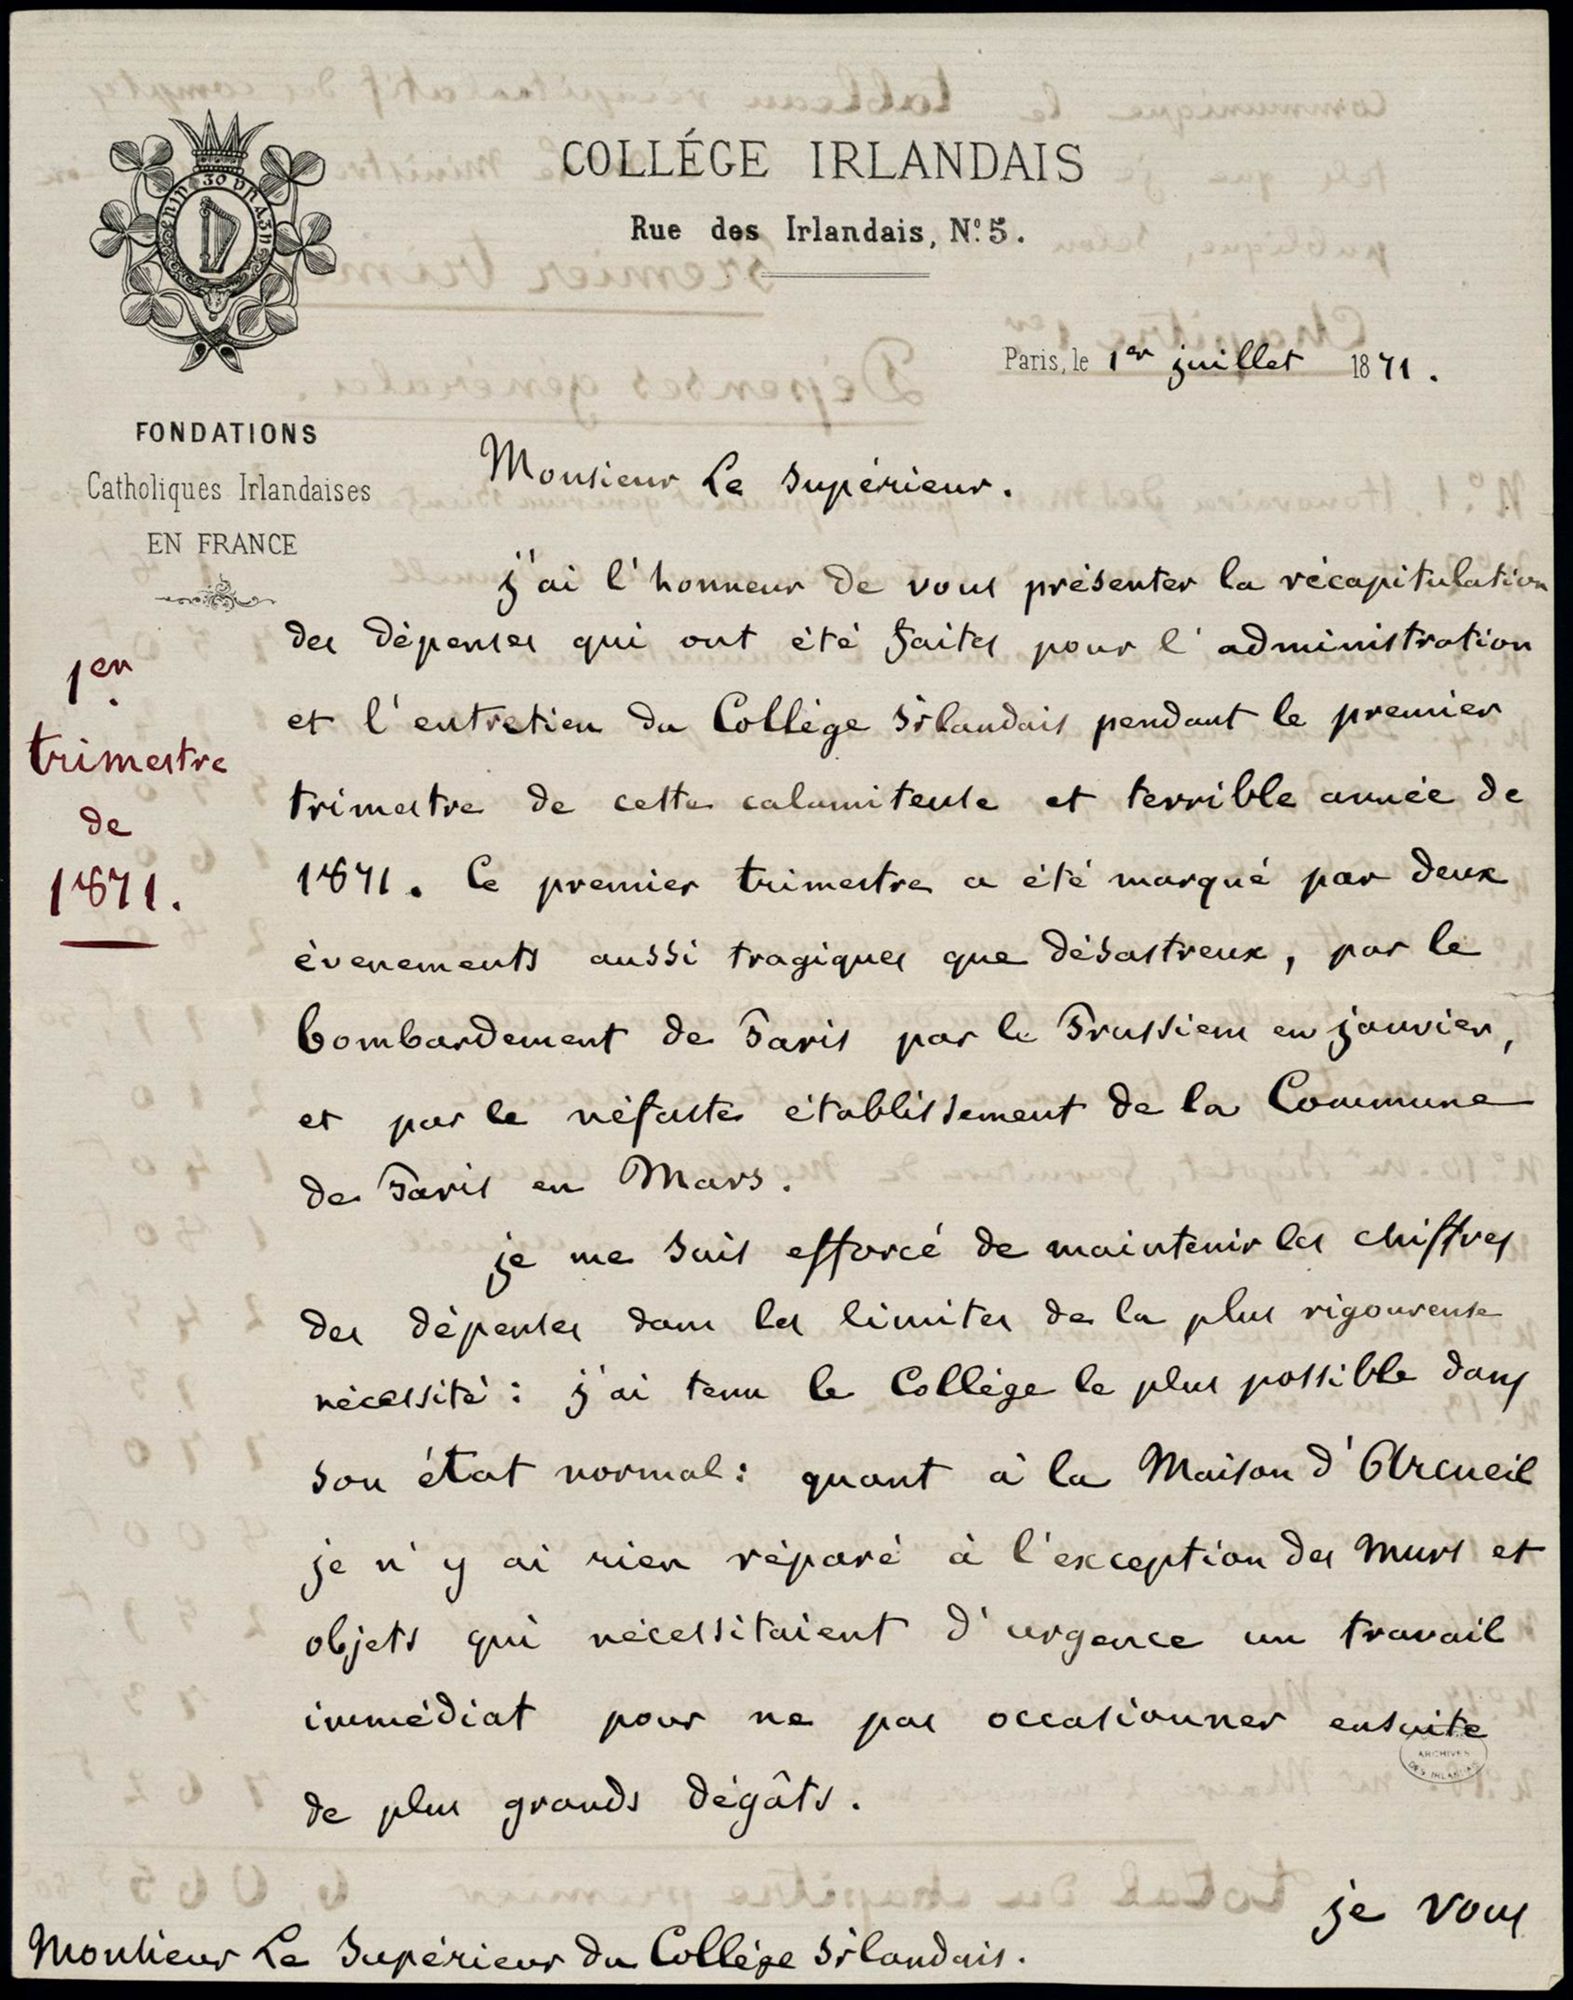 COLLÉGE IRLANDAIS
Rue des Irlandais, N.º 5.
Paris, le 1er juillet 1871.
FONDATIONS
Catholiques Irlandaises
EN FRANCE
1er
trimestre
de
1871.
Monsieur Le Supérieur.
j'ai l'honneur de vous présenter la récapitulation
des dépenses qui ont été faites pour l'administration
et l'entretien du Collège Irlandais pendant le premier
trimestre de cette calamiteuse et terrible année de
1871. Ce premier trimestre a été marqué par deux
évenements aussi tragiques que désastreux, par le
bombardement de Paris par les Prussiens en janvier,
et par le néfaste établissement de la Commune
de Paris en Mars.
je me suis efforcé de maintenir les chiffres
des dépenses dans les limites de la plus rigoureuse
nécessité : j'ai tenu le Collège le plus possible dans
son état normal : quant à la Maison d'Arcueil
je n'y ai rien réparé à l'exception des murs et
objets qui nécessitaient d'urgence un travail
immédiat pour ne pas occasionner ensuite
de plus grands dégâts.
ARCHIVES
DES IRLANDAIS
je vous
Monsieur Le Supérieur du Collège Irlandais.